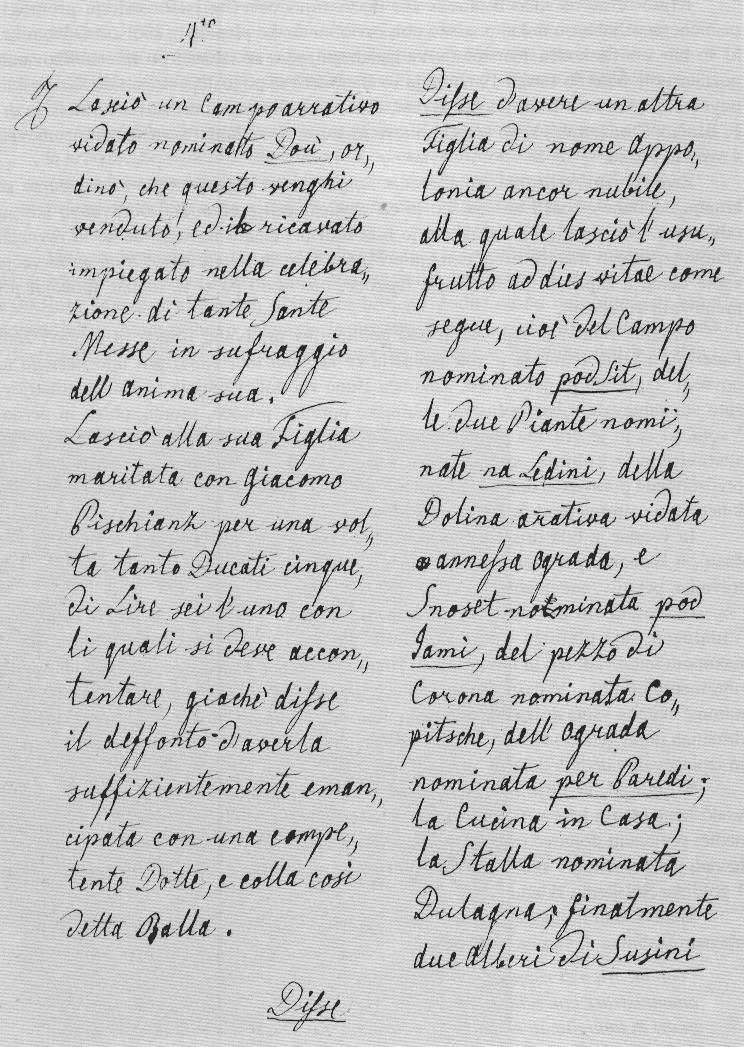 4to
Lasciò un Campo arrativo
vidato nominato Doù, or„
dinò, che questo venghi
venduto, ed il ricavato
impiegato nella celebra„
zione di tante Sante
Messe in sufraggio
dell'anima sua.
Lasciò alla sua Figlia
maritata con Giacomo
Pischianz per una vol„
ta tanto Ducati cinque,
di Lire sei l'uno con
li quali si deve accon„
tentare, giachè disse
il deffonto d'averla
suffizientemente eman„
cipata con una compe„
tente Dotte, e colla così
detta Balla.
Disse
Disse d'avere un altra
Figlia di nome Appo„
lonia ancor nubile,
alla quale lasciò l'usu„
frutto ad dies vitae come
segue, cioè del Campo
nominato pod Sit, del„
le due Piante nomi„
nate na Ledini, della
Dolina arativa vidata
annessa Ograda, e
Snoset nominata pod
Jami, del pezzo di
Corona nominata Co„
pitsche, dell'Ograda
nominata per Paredi;
la Cucina in Casa;
la Stalla nominata
Dulagna; finalmente
due alberi di Susini